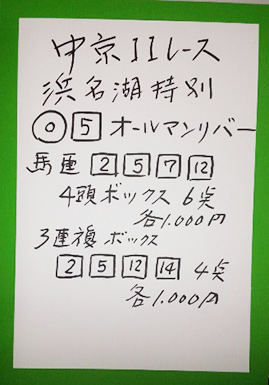 中京11レース
浜名湖特別
◎ 5 オールマンリバー
馬連 2 5 7 12
4頭ボックス 6点
各1.000円
3連複ボックス
2 5 12 14 4点
各1.000円